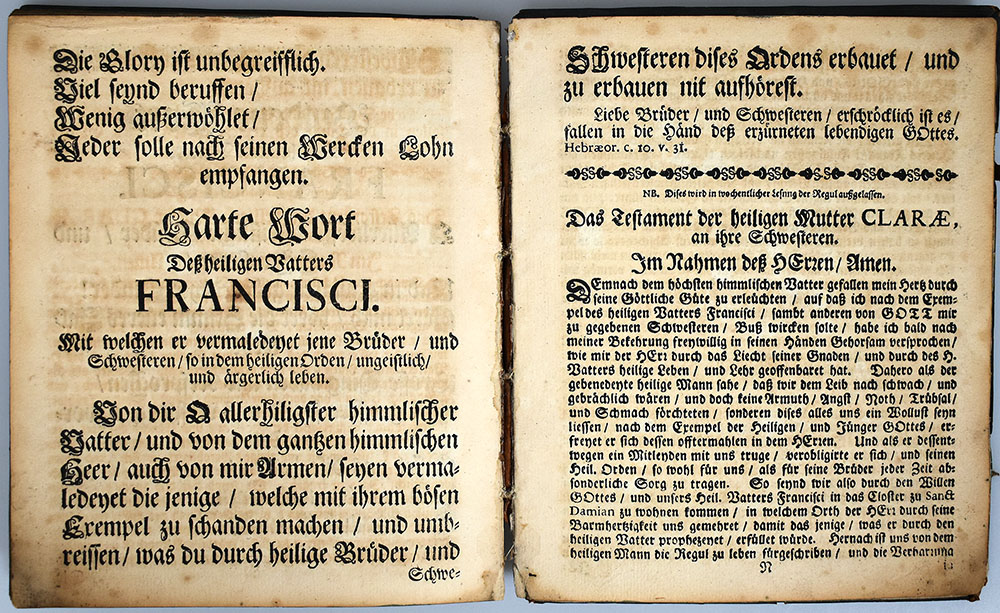 Die Glory ist unbegreifflich.
Viel seynd beruffen /
Wenig außerwöhlet /
Jeder solle nach seinen Wercken Lohn
empfangen.
Harte Wort
Deß heiligen Vatters
FRANCISCI.
Mit welchen er vermaledeyet jene Brüder / und
Schwesteren / so in dem heiligen Orden / ungeistlich /
und ärgerlich leben.
Von dir O allerhiligster himmlischer
Vatter / und von dem gantzen himmlischen
Heer / auch von mir Armen / seyen verma-
ledeyet die jenige / welche mit ihrem bösen
Exempel zu schanden machen / und umb-
reissen / was du durch heilige Brüder / und
Schwe-
Schwesteren dises Ordens erbauet / und
zu erbauen nit aufhörest.
Liebe Brüder / und Schwesteren / erschröcklich ist es /
fallen in die Händ deß erzürneten lebendigen GOttes.
Hebræor. c. 10. v. 31.
NB. Dises wird in wochentlicher Lesung der Regul außgelassen.
Das Testament der heiligen Mutter CLARÆ,
an ihre Schwesteren.
Im Nahmen deß HErren / Amen.
DEmnach dem höchsten himmlischen Vatter gefallen mein Hertz durch
seine Göttliche Güte zu erleuchten / auf daß ich nach dem Exem-
pel des heiligen Vatters Francisci / sambt anderen von GOTT mir
zu gegebenen Schwesteren / Buß wircken solte / habe ich bald nach
meiner Bekehrung freywillig in seinen Händen Gehorsam versprochen /
wie mir der HErr durch das Liecht seiner Gnaden / und durch des H.
Vatters heilige Leben / und Lehr geoffenbaret hat. Dahero als der
gebenedeyte heilige Mann sahe / daß wir dem Leib nach schwach / und
gebrächlich wären / und doch keine Armuth / Angst / Noth / Trübsal /
und Schmach förchteten / sonderen dises alles uns ein Wollust seyn
liessen / nach dem Exempel der Heiligen / und Jünger GOttes / er-
freyet er sich dessen offtermahlen in dem HErren. Und als er dessent-
wegen ein Mitleyden mit uns truge / verobligirte er sich / und seinen
Heil. Orden / so wohl für uns / als für seine Brüder jeder Zeit ab-
sonderliche Sorg zu tragen. So seynd wir also durch den Willen
GOttes / und unsers Heil. Vatters Francisci in das Closter zu Sanct
Damian zu wohnen kommen / in welchem Orth der HErr durch seine
Barmhertzigkeit uns gemehret / damit das jenige / was er durch den
heiligen Vatter prophezeyet / erfüllet würde. Hernach ist uns von dem
heiligen Mann die Regul zu leben fürgeschriben / und die Verharrung
N in